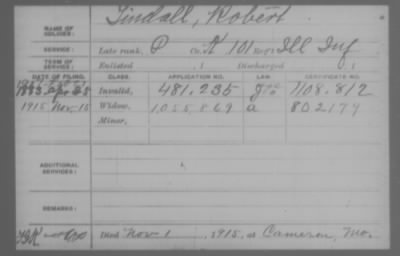 NAME OF SOLDIER: Tindall, Robert
SERVICE: Late rank, P Co. K 101 Reg't Ill Inf
TERM OF SERVICE: Enlisted , 1 Discharged , 1
DATE OF FILING. CLASS. APPLICATION NO. LAW. CERTIFICATE NO.
1883 Invalid, 481.235 1108.812
1915 Nov. 15 Widow, 1,055,869 a 802179
Minor,
ADDITIONAL SERVICES:
REMARKS:
Died Nov 1 , 1915, at Cameron, Mo.